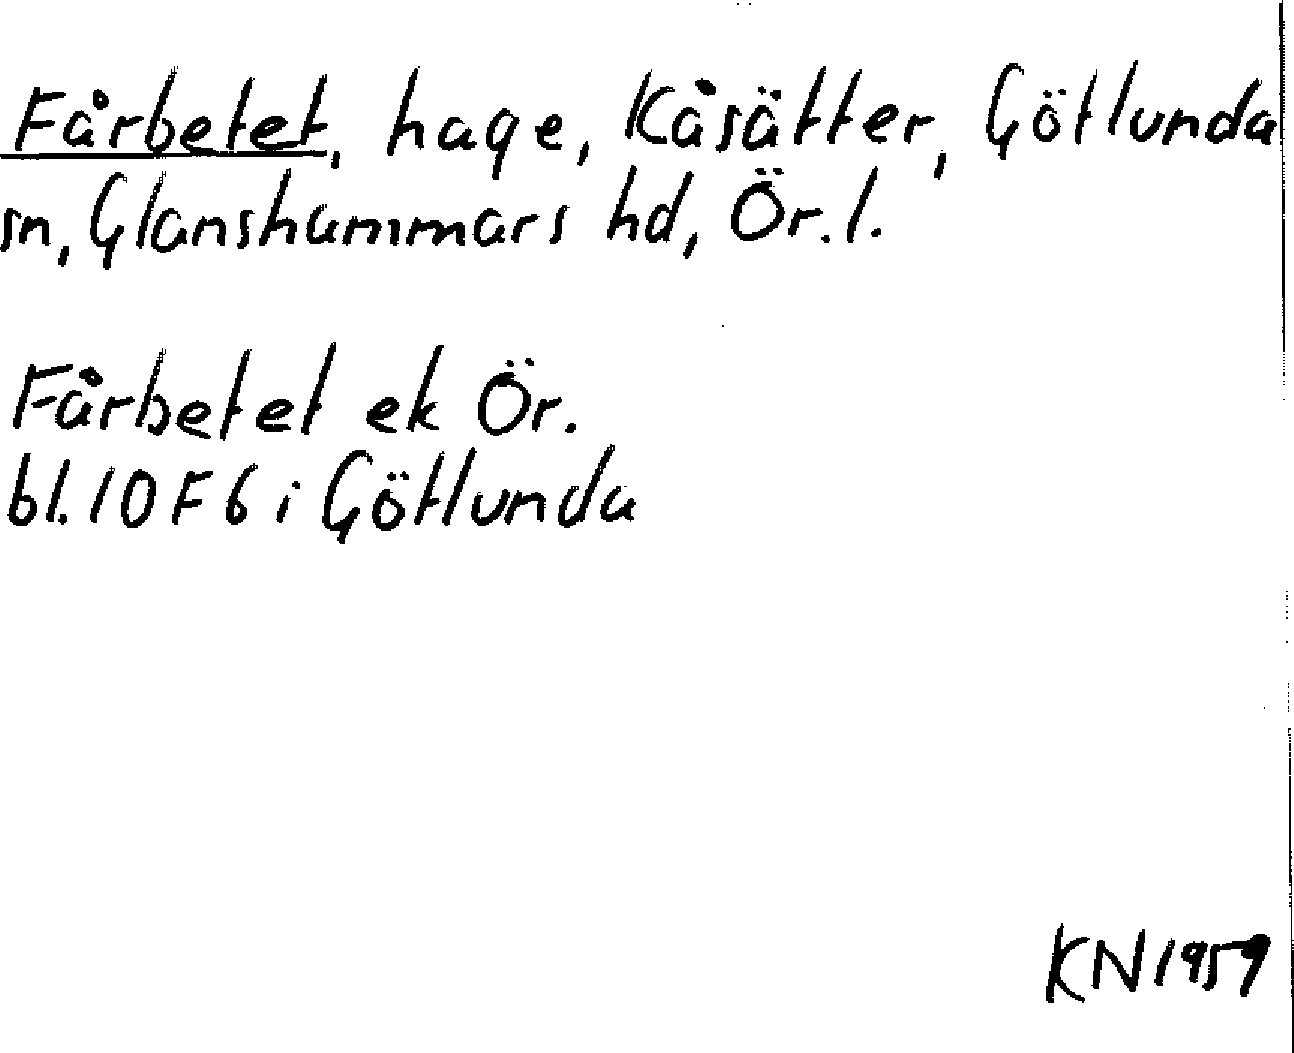 Fårbetet, hage, Kåsätter, Götlunda
sn, Glanshammars hd, Ör. l.
Fårbetet ek Ör.
bl. 10 F 6 i Götlunda
KN 1959